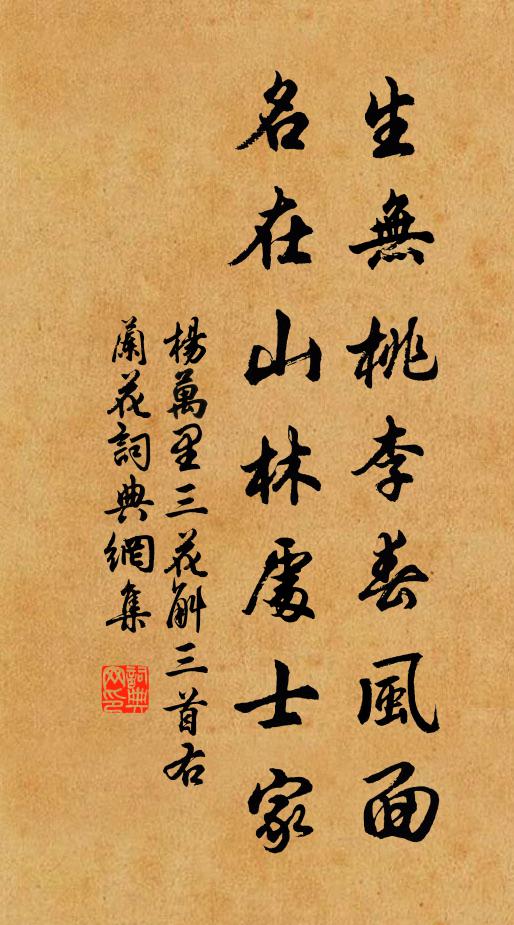 生無桃李春風面
名在山林處士家
楊萬里三花斛三首右
蘭花詞典網集
詞典
网印